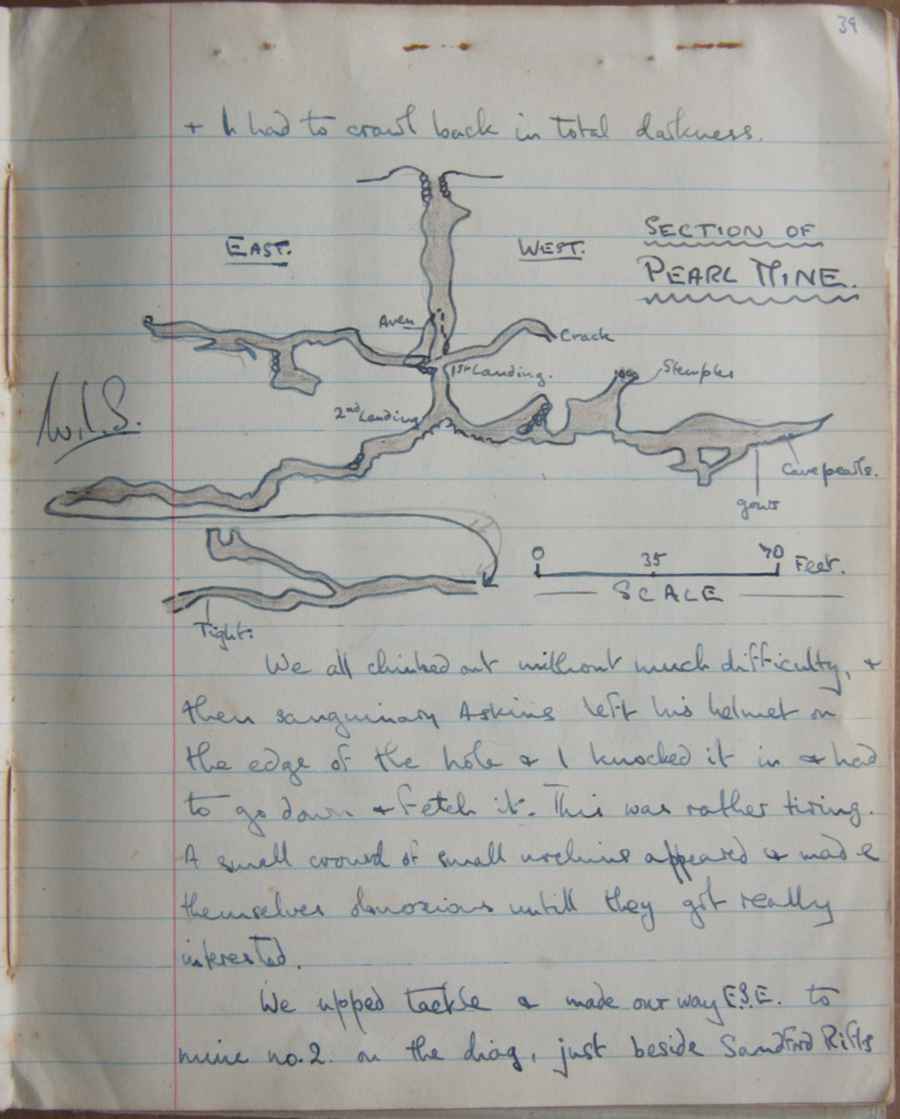 39
+ h had to crawl back in total darkness.
SECTION OF
PEARL MINE.
EAST.
WEST.
Aven
Crack
1st Landing.
Stemples
2nd Landing
W.I.S.
Cave pearls.
gours
0 35 70 Feet.
SCALE
Tight:
We all climbed out without much difficulty, +
then sanguinary Askins left his helmet on
the edge of the hole & I knocked it in & had
to go down & fetch it. This was rather tiring.
A small crowd of small urchins appeared & made
themselves obnoxious untill they got really
interested.
We upped tackle & made our way E.S.E. to
mine no. 2. on the diag, just beside Sandford Rifts